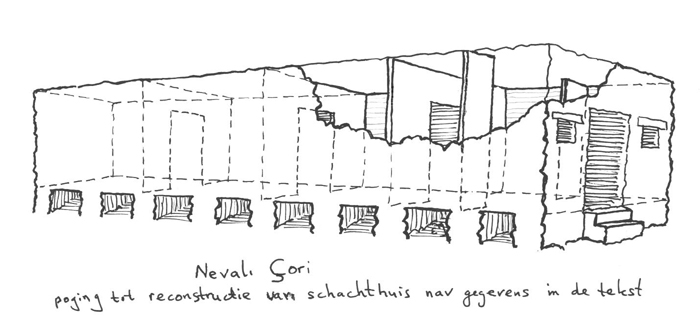 Nevalı Çori
poging tot reconstructie van schachthuis nav gegevens in de tekst